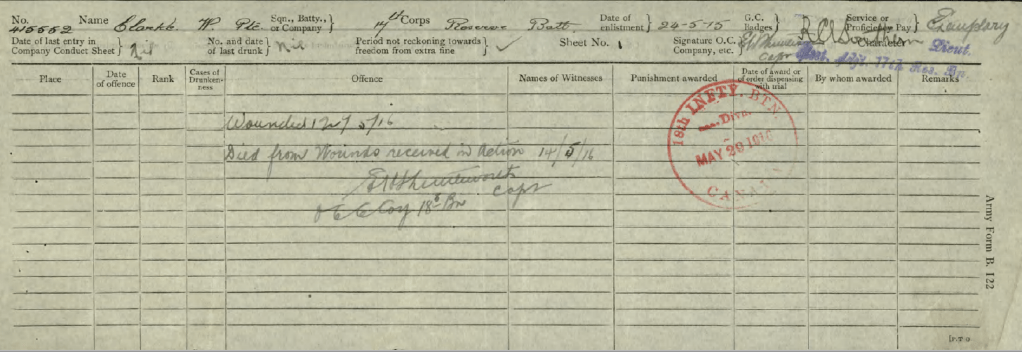 No. 415552 Name Clarke W. Pte. Sqn., Batty., or Company } 17th Corps Reserve Batt. Date of enlistment } 24-5-15 G.C. Badges } Service or Proficiency Pay } Exemplary
Date of last entry in Company Conduct Sheet } nil No. and date of last drunk } nil Period not reckoning towards freedom from extra fine } ✓ Sheet No. 1 Signature O.C. Company, etc. } Capt Character
Lieut.
Adjt. 17th Res. Bn.
Place Date of offence Rank Cases of Drunkenness Offence Names of Witnesses Punishment awarded Date of award or of order dispensing with trial By whom awarded Remarks
Wounded 5/16
Died from Wounds received in Action 14/5/16
Capt
O C Coy 18th Bn
18th INFTY. BTN.
Divn.
MAY 29 1916
CANADA
Army Form B. 122
P.T.O